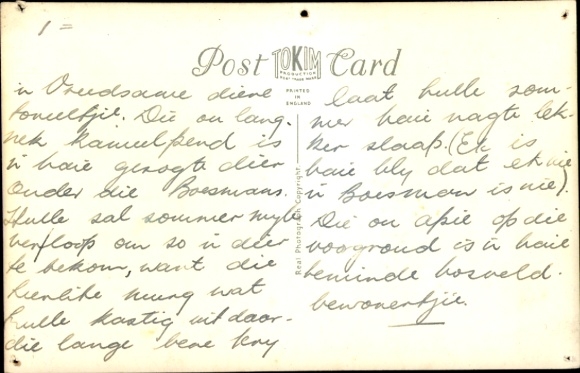 1 =
Post TOKIM Card
PRODUCTION
PRINTED
IN
ENGLAND
Real Photograph Copyright
'n Vreedsame diere
toneeltjie. Die ou lang-
nek kameelperd is
'n baie gesogte dier
onder die Boesmans.
Hulle sal sommer myle
ver loop om so 'n dier
te bekom, want die
heerlike murg wat
hulle kastig uit daar-
die lange bene kry
laat hulle som-
mer baie nagte lek-
ker slaap. (Ek is
baie bly dat ek nie
'n Boesman is nie).
Die ou apie op die
voorgrond is 'n baie
beminde bosveld-
bewonertjie.